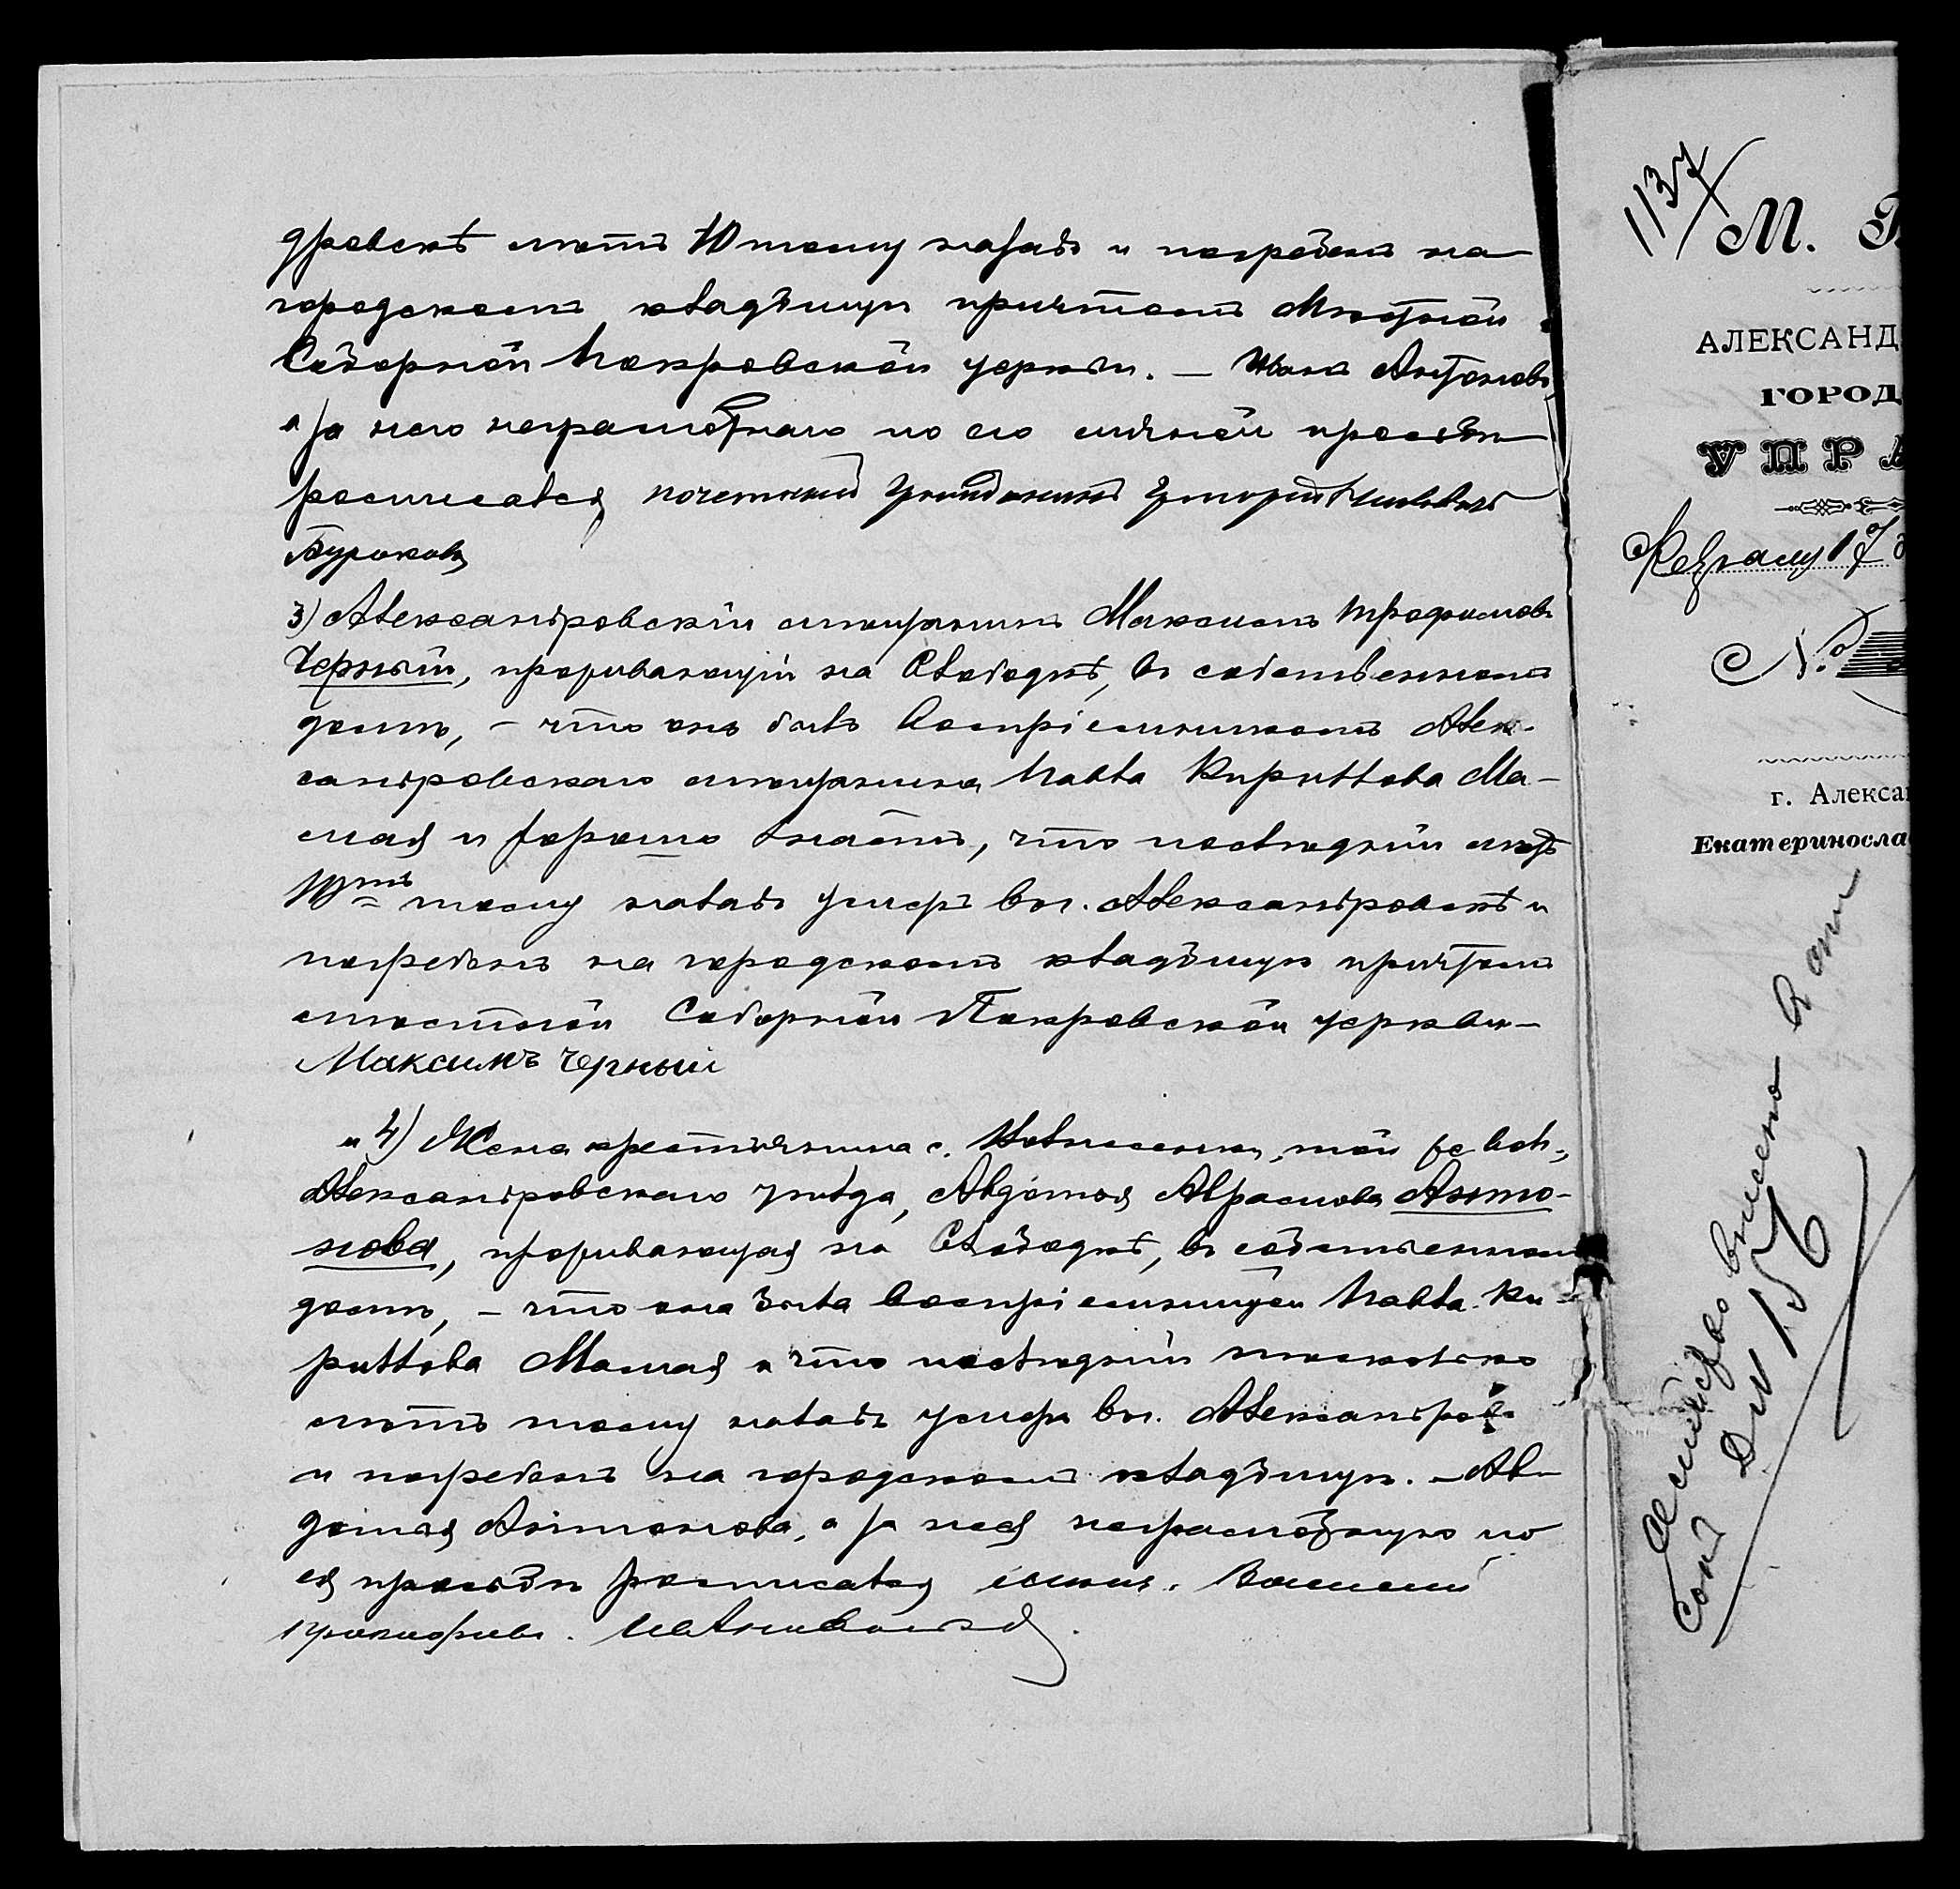 дровскѣ лѣтъ 10 тому назадъ и погребенъ на
городскомъ кладбищѣ причтомъ Мѣстной
Соборной Покровской церкви. — Иванъ Антоновъ
а за него неграмотнаго по его личной просьбѣ
росписался почетный гражданинъ Григорій
Бураковъ
3) Александровскій мѣщанинъ Максимъ Трофимовъ
Черный, проживающій на Слободкѣ, въ собственномъ
домѣ, – что онъ былъ воспріемникомъ Алек-
сандровскаго мѣщанина Павла Кириллова Ма-
мая и хорошо знаетъ, что послѣдній лѣтъ
10ть тому назадъ умеръ въ г. Александровскѣ и
погребенъ на городскомъ кладбищѣ причтомъ
мѣстной Соборной Покровской церкви –
Максимъ Черный
и 4) Жена крестьянина с. той же вол.,
Александровскаго уѣзда, Авдотья Абрамова Анто-
нова, проживающая на Слободкѣ, въ собственномъ
домѣ, – что она была воспріемницей Павла Ки-
риллова Мамая и что послѣдній нѣсколько
лѣтъ тому назадъ умеръ въ г. Александров
и погребенъ на городскомъ кладбищѣ. – Ав-
дотья Антонова, а за нея неграмотную по
ея просьбѣ росписался Василій
1137
М.
АЛЕКСАНД
ГОРОД
УПРА
17
№
г. Алекса
Екатериносла
Семейство внесено въ
сокъ Дм 15